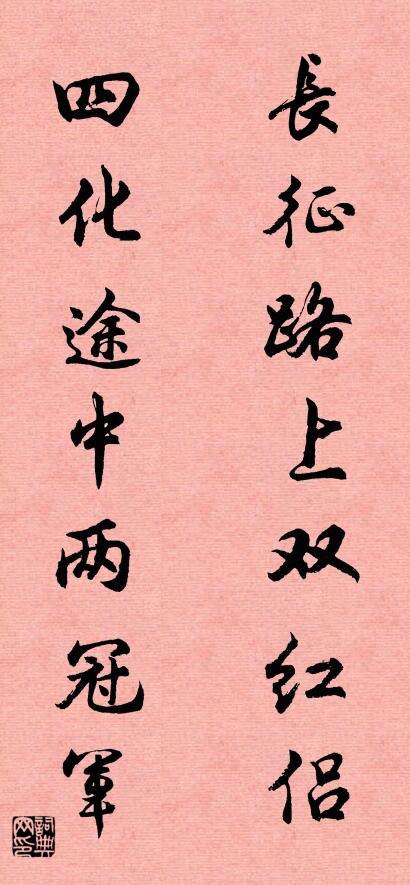 長征路上双红侣
四化途中两冠軍
詞典网印